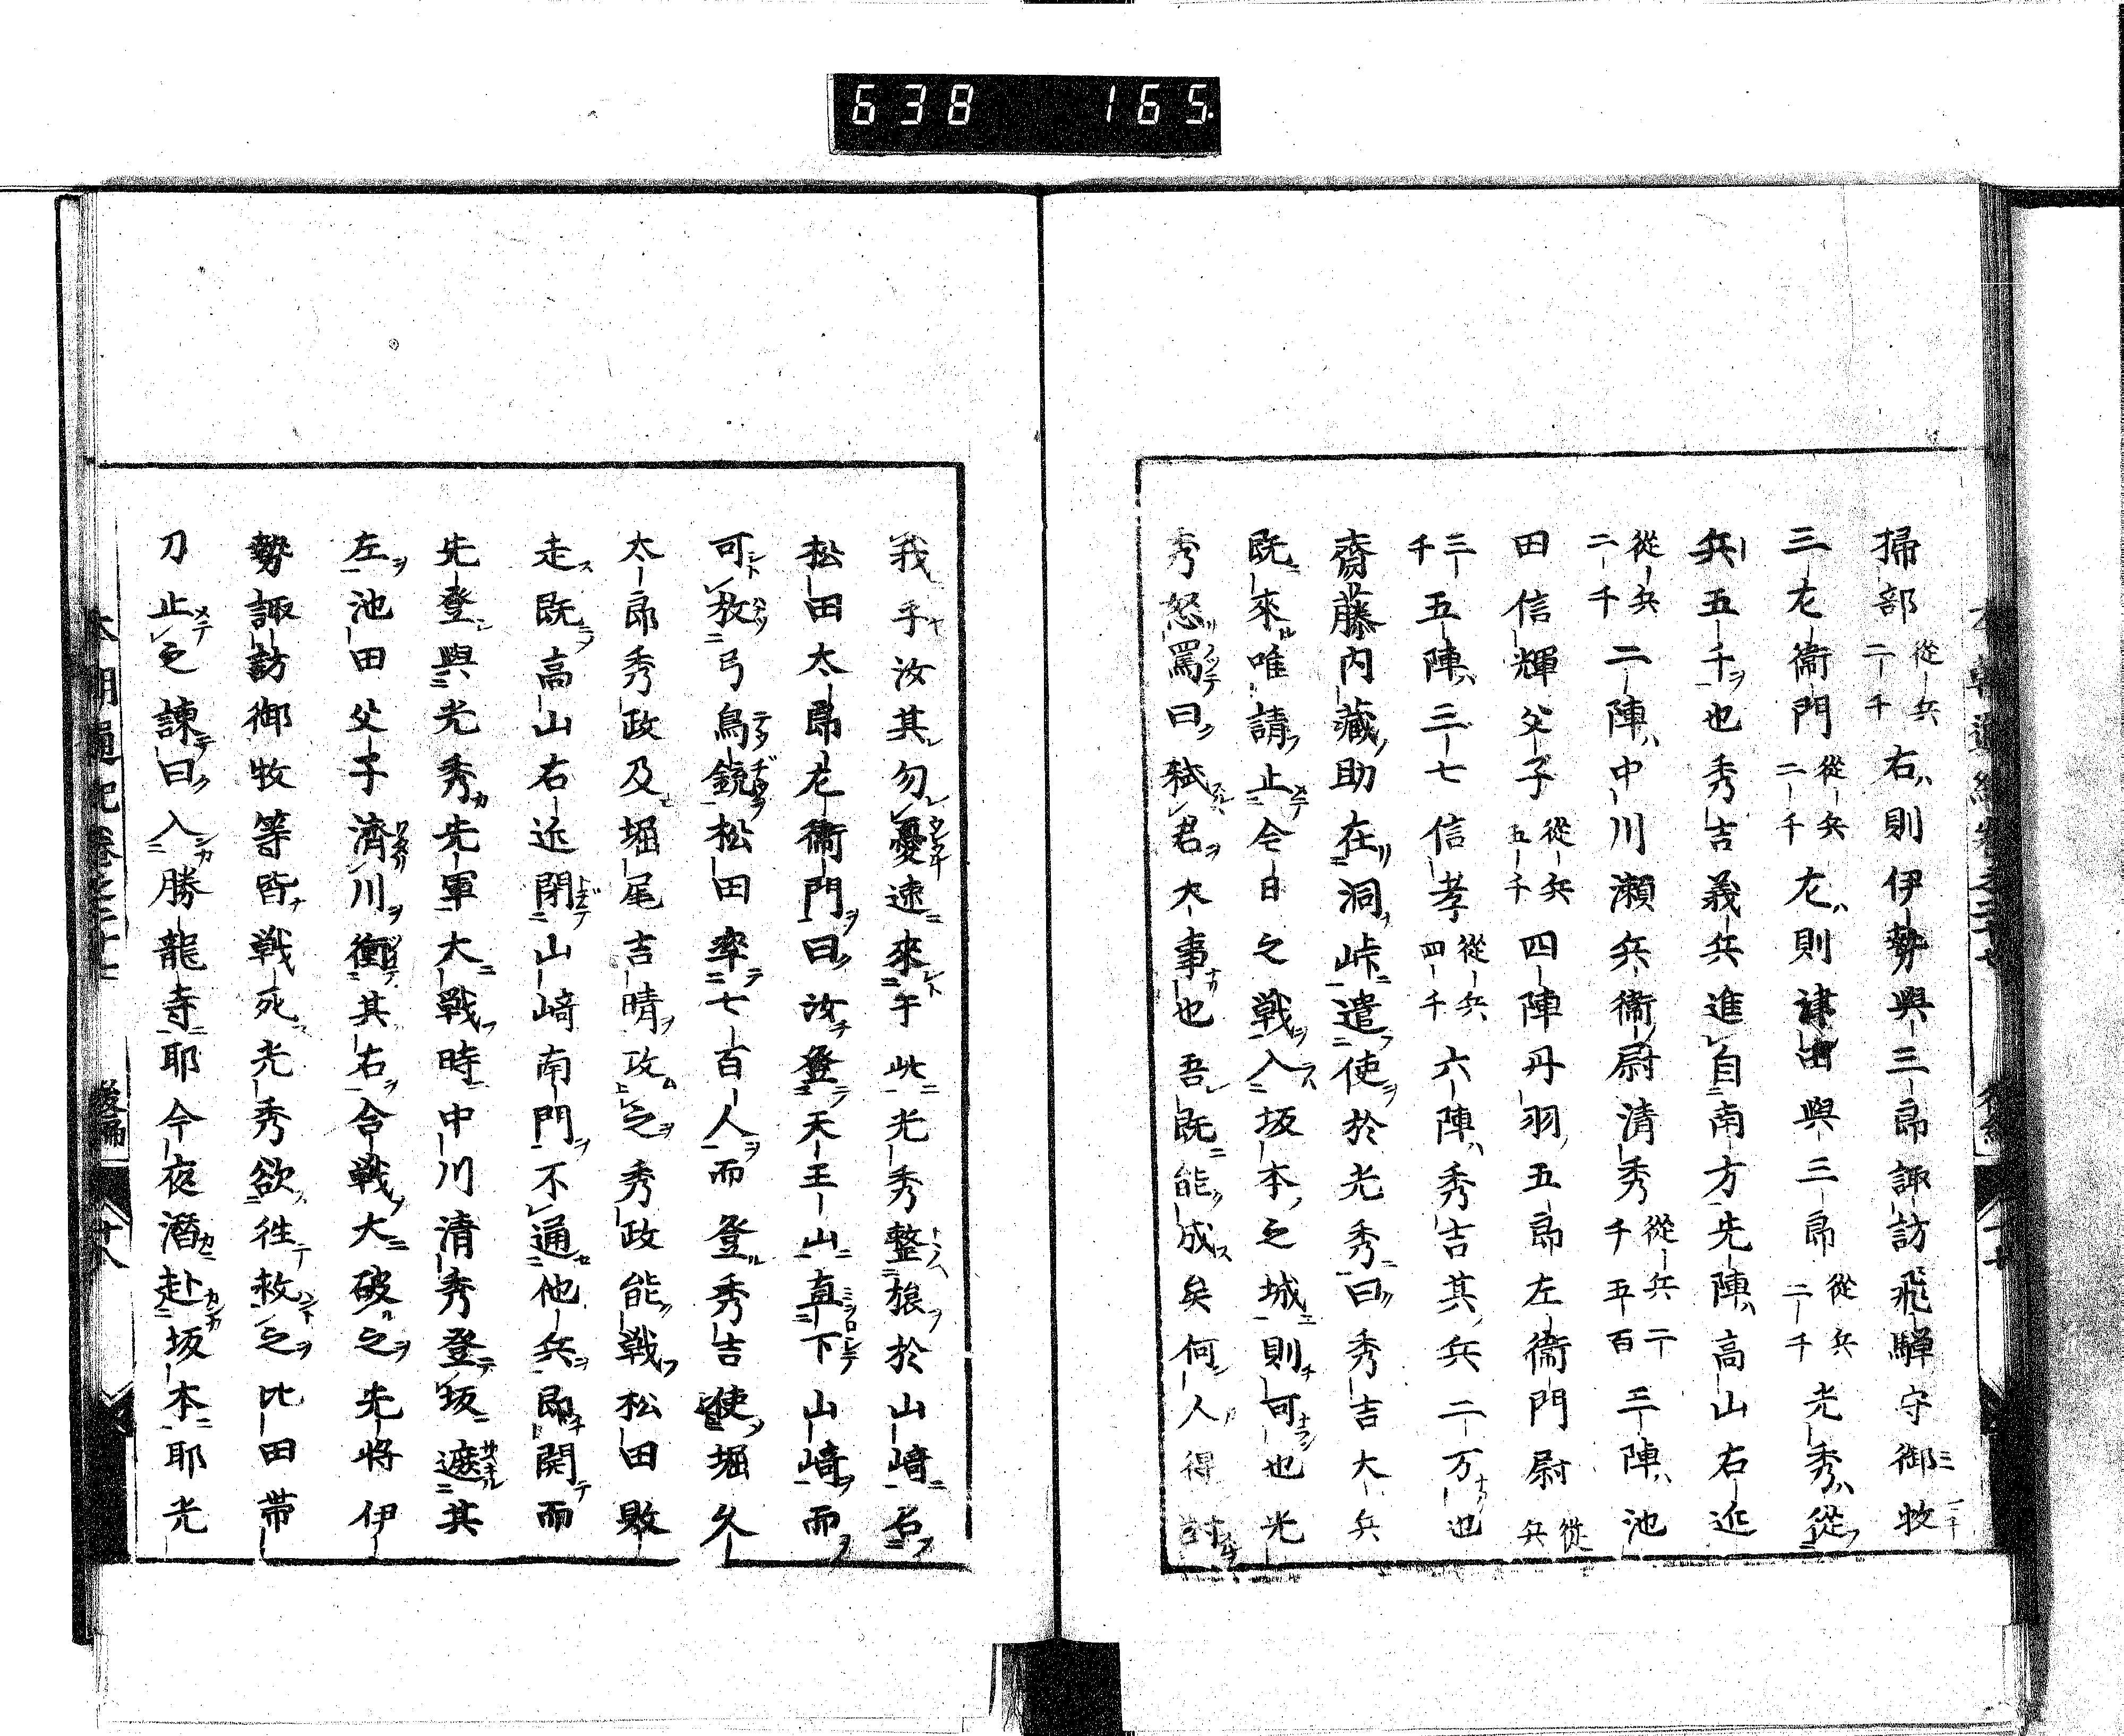 638 165
掃部従兵二千右則伊勢與三郎諏訪飛騨守御牧三
三左衞門従兵二千左則津田與三郎従兵二千光秀従
兵五千也秀吉義兵進自南方先陣高山右近
従兵二千二陣中川瀬兵衞尉清秀従兵二千五百三陣池
田信輝父子従兵五千四陣丹羽五郎左衞門尉従兵
三千五陣三七信孝従兵四千六陣秀吉其兵二万也
齋藤内藏助在洞峠遣使於光秀曰秀吉大兵
既來唯請止今日之戦入坂本之城則可也光
秀怒罵曰弑君大事也吾既能成矣何人得討
我乎汝其勿憂速來乎此光秀整旅於山﨑召
松田太郎左衞門曰汝登天王山直下山﨑而
可放弓鳥銃松田率七百人而登秀吉使堀久
太郎秀政及堀尾吉晴攻之秀政能戦松田敗
走既高山右近閉山﨑南門不通他兵即開而
先登與光秀先軍大戦時中川清秀登坂遮其
左池田父子濟川衝其右合戦大破之先将伊
勢諏訪御牧等皆戦死光秀欲徃救之比田帯
刀止之諌曰入勝龍寺耶今夜潛赴坂本耶光
後編 十八